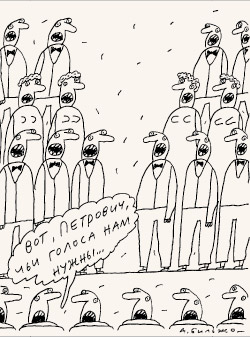 ВОТ, ПЕТРОВИЧ,
ЧЬИ ГОЛОСА НАМ
НУЖНЫ...
А.БИЛЬЖО-